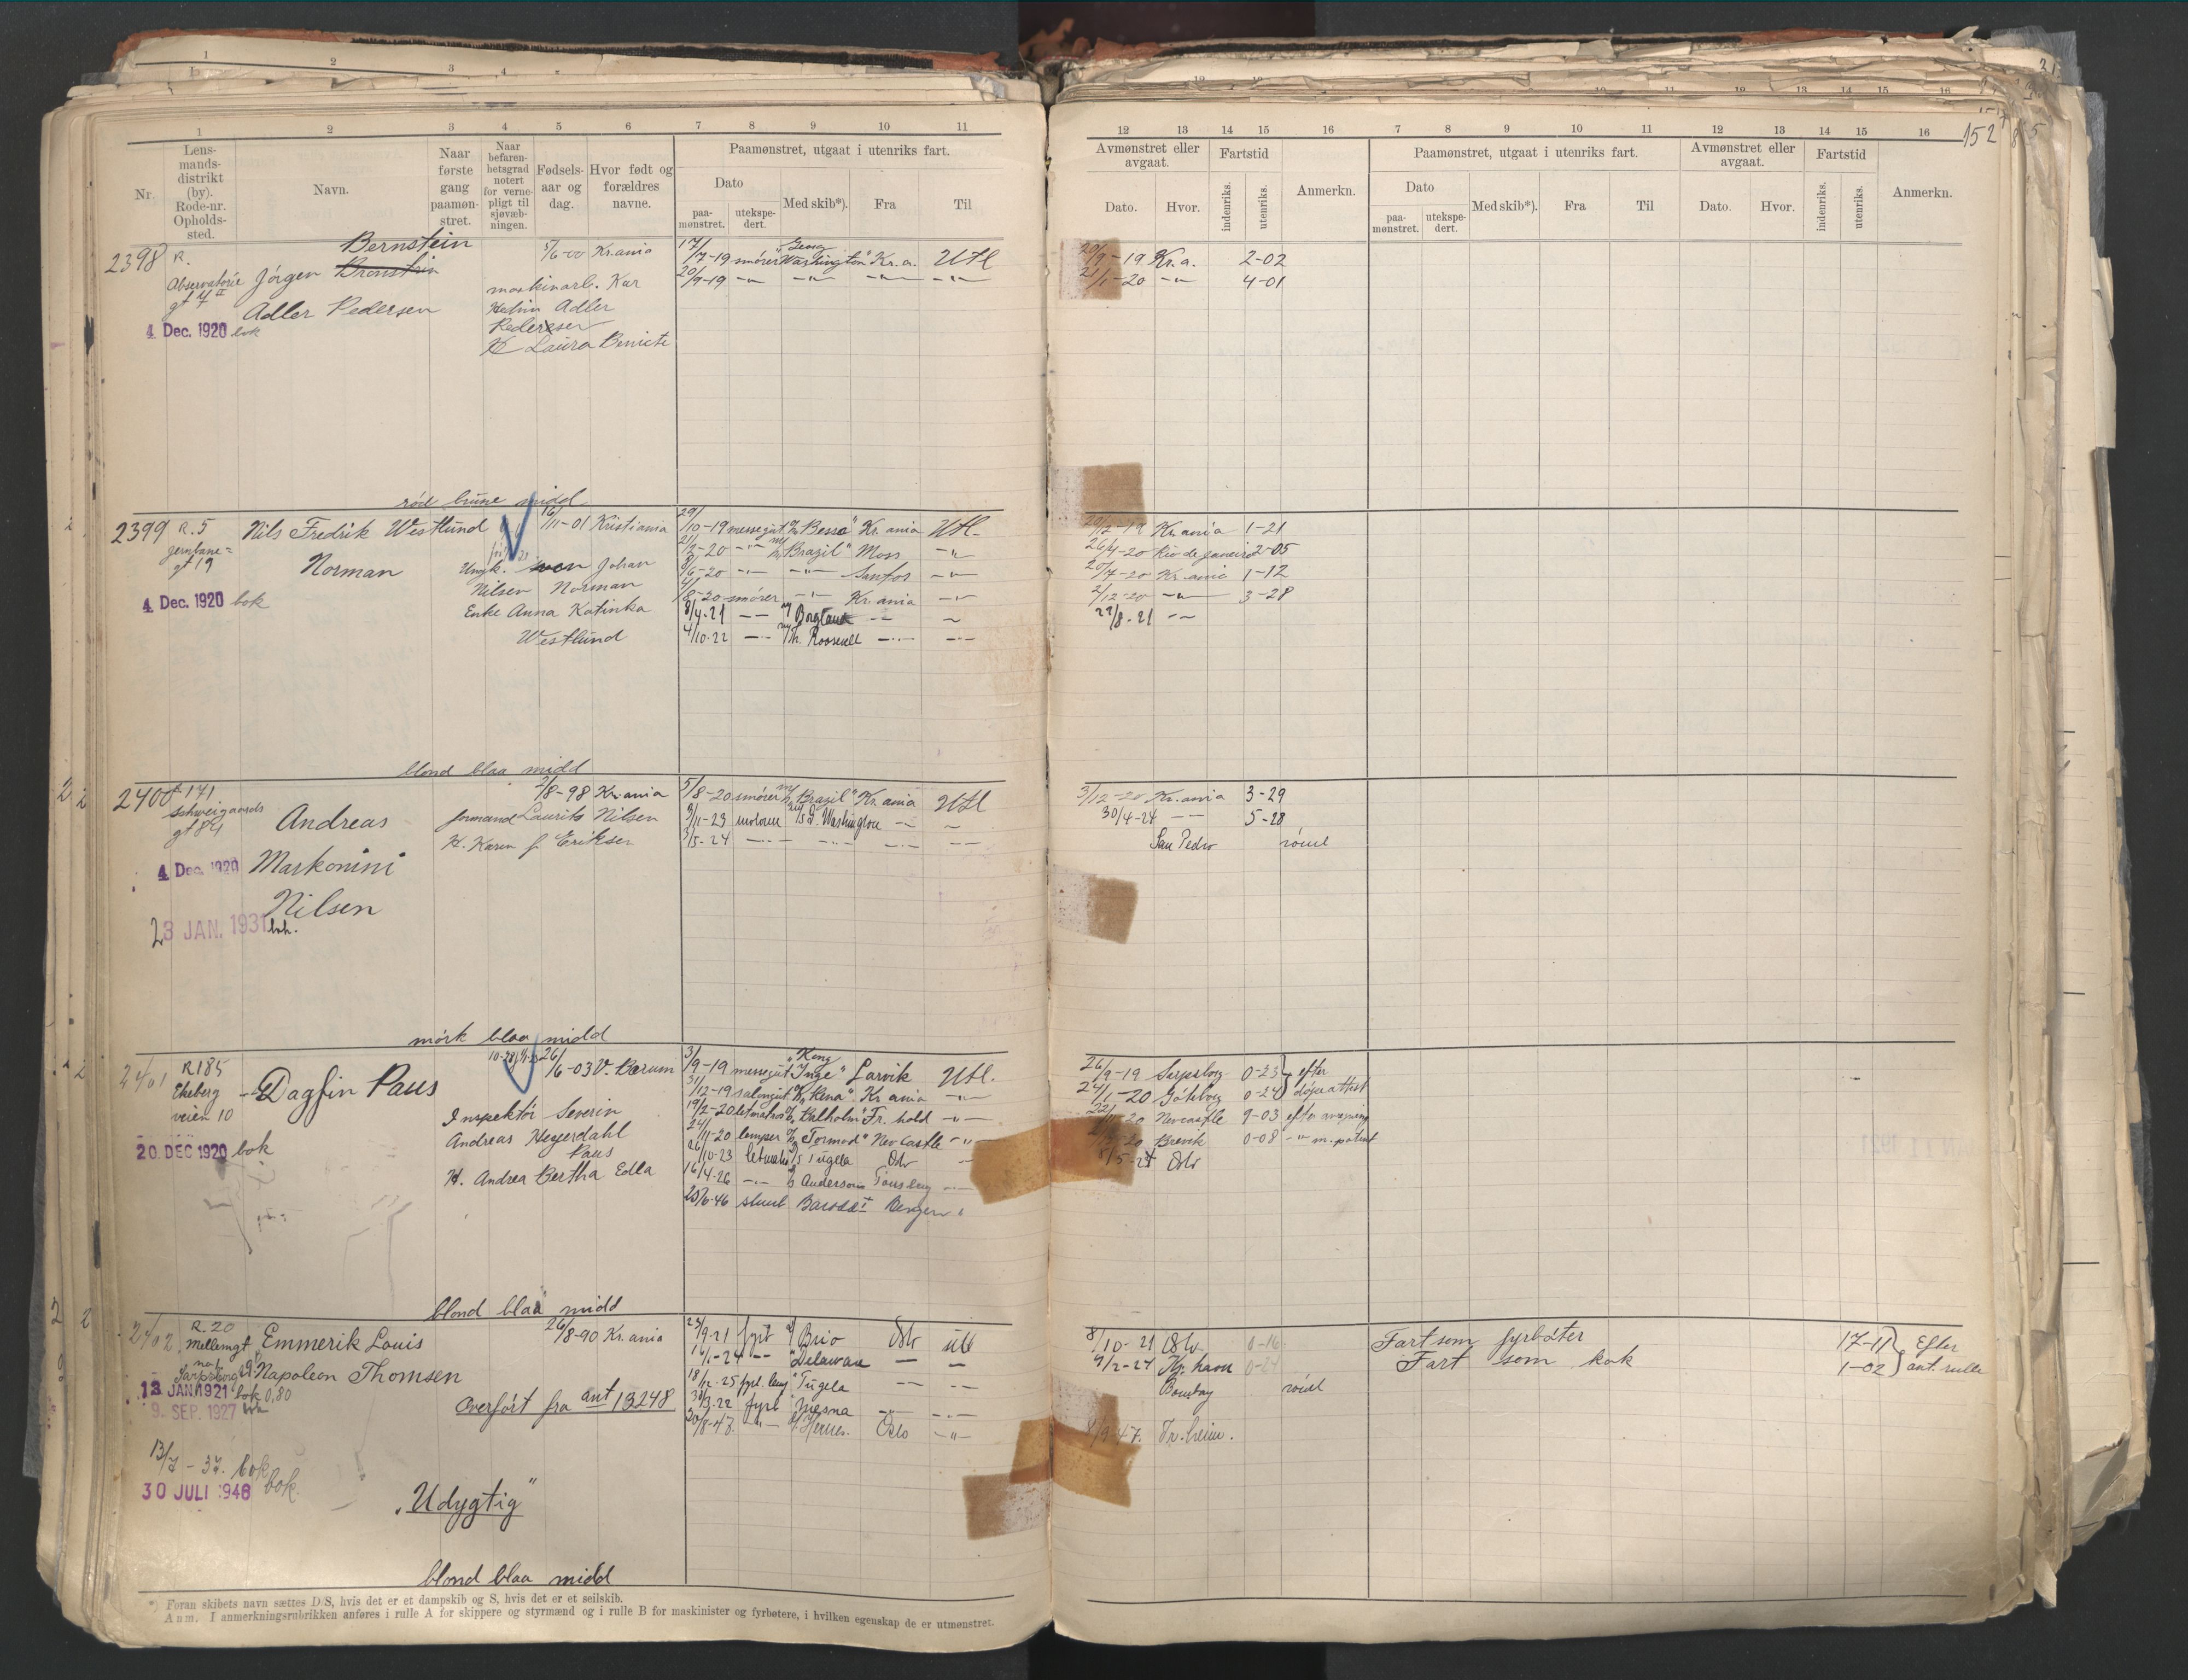 1 2 3 4 5 6 7 8 9 10 11
12 13 14 15 16 7 8 9 10 11 12 13 14 15 16
152
Nr.
Lens-
mands-
distrikt
(by).
Rode-nr.
Opholds-
sted.
Navn.
Naar
første
gang
paamøn-
stret.
Naar
befaren-
hetsgrad
notert
for verne-
pligt til
sjøvæb-
ningen.
Fødsels-
aar og
dag.
Hvor født og
forældres
navne.
Paamønstret, utgaat i utenriks fart.
Dato
paa-
mønstret.
utekspe-
dert.
Med skib*).
Fra
Til
Avmønstret eller
avgaat.
Dato.
Hvor.
Fartstid
indenriks.
utenriks.
Anmerkn.
Paamønstret, utgaat i utenriks fart.
Dato
paa-
mønstret.
utekspe-
dert.
Med skib*).
Fra
Til
Avmønstret eller
avgaat.
Dato.
Hvor.
Fartstid
indenriks.
utenriks.
Anmerkn.
2398 R.
Observatorie
gt 7 II
4 Dec. 1920 bok
Bernstein
Jörgen Bronstein
Adler Pedersen
5/6-00 Kr.ania
maskinarb. Kar
Helm Adler
Pedersen
H Laura Benicte
17/7-19 smører "Georg Washington" Kr.a. Utl
20/9-19 -"- -"- -"- -"-
20/9-19 Kr.a. 2-02
21/1-20 -"- 4-01
rød brune midd
2399 R. 5
Jernbane=
gt 19
4 Dec. 1920 bok
Nils Fredrik Westlund
Norman
16/11-01 Kristiania
Ungk. Johan
Nilsen Norman
Enke Anna Katinka
Westlund
29/10-19 messegut "Bessa" Kr.ania Utl.
21/2-20 -"- "Brazil" Moss -"-
8/6-20 -"- -"- Santos -"-
4/8-20 smører -"- Kr.ania -"-
8/4-21 -"- Borgland -"-
4/10-22 -"- Th. Roosevelt -"- -"-
20/12-19 Kr.ania 1-21
26/4-20 Rio de Janeiro 2-05
20/7-20 Kr.ania 1-12
2/12-20 -"- 3-28
22/8-21 -"-
blond blaa midd
2400 R 171
Schweigaards
gt 84
4 Dec. 1920
23 JAN. 1931 bok.
Andreas
Markonini
Nilsen
2/8-98 Kr.ania
formand Laurits Nilsen
H. Karen f. Eriksen
5/8-20 smører "Brazil" Kr.ania Utl
3/11-23 motorm G. Washington -"-
3/5-24 -"- -"- -"- -"-
3/12-20 Kr.ania 3-29
30/4-24 -"- 5-28
San Pedro römt
mørk blaa midd
2401 R185
Ekeberg
veien 10
20. DEC 1920 bok
Dagfin Paus
26/6-03 V. Bærum
Inspektör Severin
Andreas Heyerdahl
Paus
H. Andrea Bertha Edla
3/9-19 messegut "Kong Inge" Larvik Utl.
31/12-19 salongut "Rena" Kr.ania -"-
19/2-20 "Kalholm" Fr.hald -"-
24/11-20 lemper "Tormod" Newcastle -"-
26/10-23 letmatros Tugela Oslo
16/4-26 -"- Anderson Tønsberg -"-
25/6-46 Bergen
26/9-19 Sarpsborg 0-23 } efter
24/1-20 Göteborg 0-24 } dåpsattest
22/11-20 Newcastle 9-03 efter
-20 Brevik 0-08 -"- m. patent
8/5-24 Oslo
blond blaa midd
2402 R. 20
Mellemgt
Sarpsborg
13 JAN 1921 bok 0,80
9. SEP. 1927
13/7-37. bok
30 JULI 1946 bok.
Emmerik Louis
Napoleon Thomsen
Overført fra ant 13248
"Udygtig"
26/8-90 Kr.ania
23/9-21 fyrb Brio Oslo utl
16/1-24 -"- Delaware -"- -"-
18/12-25 Tugela -"- -"-
30/3-22 fyrb Mesna -"- -"-
20/8-47. -"- Oslo -"-
8/10-21 Oslo 0-16
9/2-24 Kp.havn 0-24
Bombay römt
8/9-47. Tr.heim.
Fart som fyrböter 17-11 } Efter
Fart som kok 1-02 } ant. rulle
blond blaa midd
*) Foran skibets navn sættes D/S, hvis det er et dampskib og S, hvis det er et seilskib.
Anm. I anmerkningsrubrikken anføres i rulle A for skippere og styrmænd og i rulle B for maskinister og fyrbøtere, i hvilken egenskap de er utmønstret.